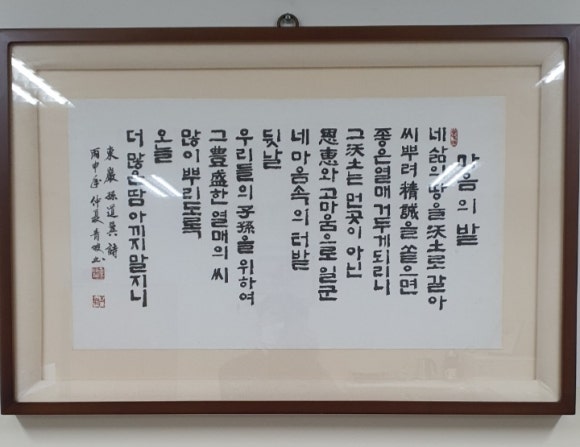 마음의 밭
네 삶의 땅을 沃土로 갈아
씨뿌려 精誠을 쏟으면
좋은 열매 거두게 되리니
그 沃土는 먼 곳이 아닌
恩惠와 고마움으로 일군
네 마음 속의 터밭
뒷날
우리들의 子孫을 위하여
그 豊盛한 열매의 씨
많이 뿌리도록
오늘
더 많은 땀 아끼지 말지니
東巖 詩
丙申年 仲夏